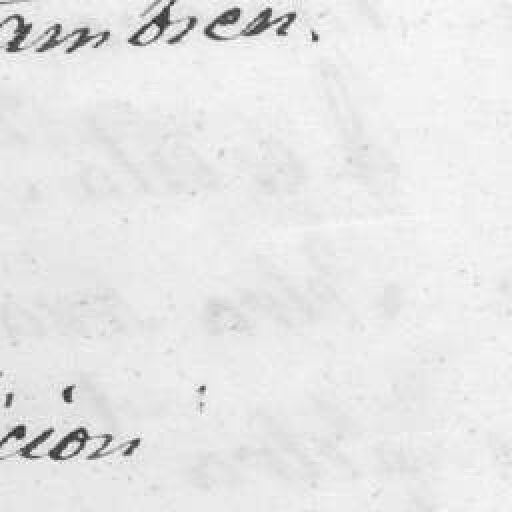 tambien.
cion